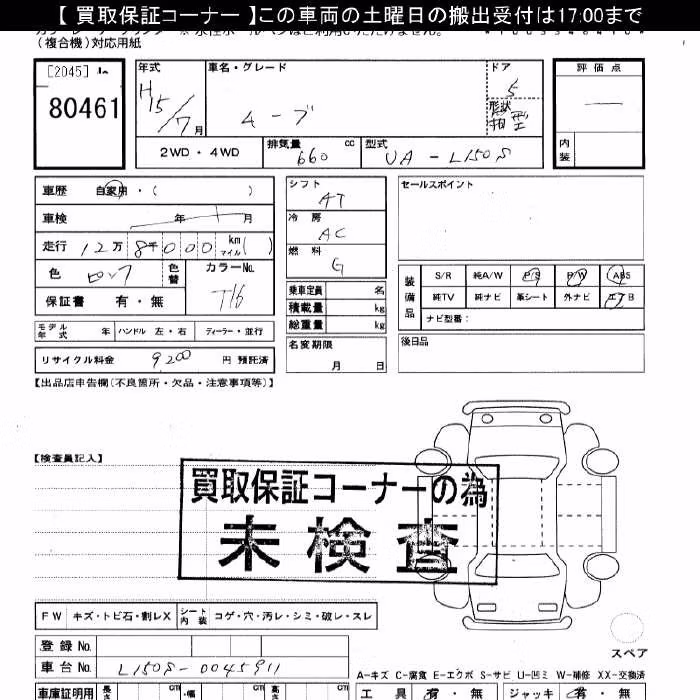 【 買取保証コーナー 】この車両の土曜日の搬出受付は17:00まで
(複合機)対応用紙
[2045]
80461
年式
H15/7月
車名・グレード
ムーブ
ドア
5
形状
箱型
評価点
内装
2WD・4WD
排気量 660 cc
型式 UA-L150S
車歴 自家用・( )
車検 年 月
走行 12万8千000 km マイル ( )
色 ピンク 色替
カラーNo. T16
保証書 有・無
シフト AT
冷房 AC
燃料 G
乗車定員 名
積載量 kg
総重量 kg
名変期限
月 日
セールスポイント
装備品
S/R 純A/W P/S P/W ABS
純TV 純ナビ 革シート 外ナビ エアB
ナビ型番:
後日品
モデル年式 年 ハンドル 左・右 ディーラー・並行
リサイクル料金 9,200 円 預託済
【出品店申告欄(不良箇所・欠品・注意事項等)】
【検査員記入】
買取保証コーナーの為
未検査
FW キズ・トビ石・割レX シート内装 コゲ・穴・汚レ・シミ・破レ・スレ
登録No.
車台No. L150S-0045911
スペア
A-キズ C-腐食 E-エクボ S-サビ U-凹ミ W-補修 XX-交換済
車庫証明用 長さ cm 幅 cm 高さ cm
工具 有・無 ジャッキ 有・無